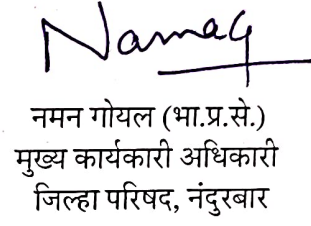 Namag
नमन गोयल (भा.प्र.से.)
मुख्य कार्यकारी अधिकारी
जिल्हा परिषद, नंदुरबार